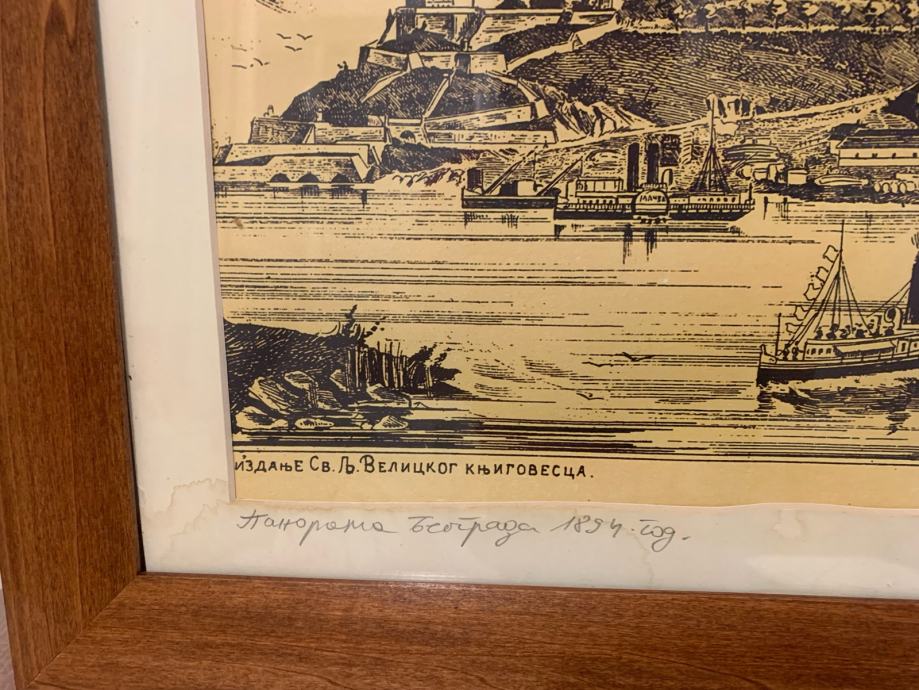 МАЧВА
издање Св. Љ. Велицког књиговесца.
Панорама Београда 1894. год.